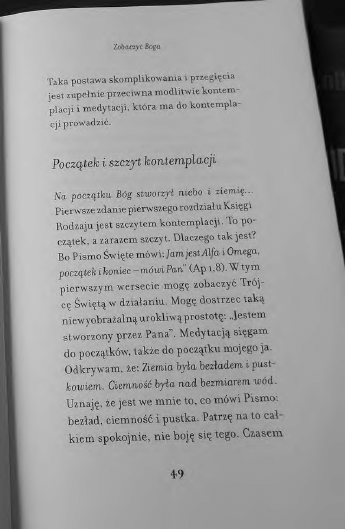 Zobaczyć Boga
Taka postawa skomplikowania i przegięcia
jest zupełnie przeciwna modlitwie kontem-
placji i medytacji, która ma do kontempla-
cji prowadzić.
Początek i szczyt kontemplacji
Na początku Bóg stworzył niebo i ziemię...
Pierwsze zdanie pierwszego rozdziału Księgi
Rodzaju jest szczytem kontemplacji. To po-
czątek, a zarazem szczyt. Dlaczego tak jest?
Bo Pismo Święte mówi: Jam jest Alfa i Omega,
początek i koniec – mówi Pan" (Ap 1,8). W tym
pierwszym wersecie mogę zobaczyć Trój-
cę Świętą w działaniu. Mogę dostrzec taką
niewyobrażalną urokliwą prostotę: „Jestem
stworzony przez Pana”. Medytacją sięgam
do początków, także do początku mojego ja.
Odkrywam, że: Ziemia była bezładem i pust-
kowiem. Ciemność była nad bezmiarem wód.
Uznaję, że jest we mnie to, co mówi Pismo:
bezład, ciemność i pustka. Patrzę na to cał-
kiem spokojnie, nie boję się tego. Czasem
49